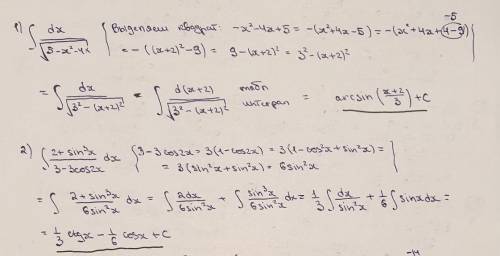 1) ∫ dx / √(5-x²-4x) { Выделяем квадрат: -x²-4x+5 = -(x²+4x-5) = -(x²+4x+4-9) -5
= -((x+2)²-9) = 9-(x+2)² = 3²-(x+2)² }
= ∫ dx / √(3²-(x+2)²) = ∫ d(x+2) / √(3²-(x+2)²) табл интеграл = arcsin((x+2)/3) + C
2) ∫ (2+sin³x) / (3-3cos2x) dx { 3-3cos2x = 3(1-cos2x) = 3(1-cos²x+sin²x) =
= 3(sin²x+sin²x) = 6sin²x }
= ∫ (2+sin³x) / (6sin²x) dx = ∫ 2dx / (6sin²x) + ∫ sin³x / (6sin²x) dx = 1/3 ∫ dx / sin²x + 1/6 ∫ sinx dx =
= 1/3 ctgx - 1/6 cosx + C